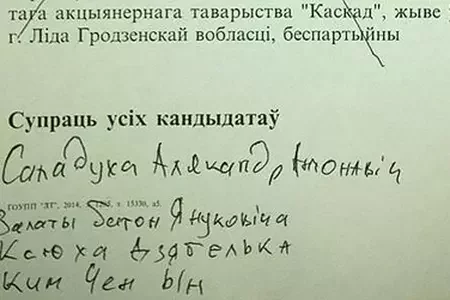 тага акцыянернага таварыства "Каскад", жыве
г. Ліда Гродзенскай вобласці, беспартыйны
Супраць усіх кандыдатаў
Саладуха Алякандр Антонавіч
ГОУПП "ЛТ", 2014, з. 15330, а5.
Залаты батон Януковіча
Ксюха Дзятелька
Ким Чен Ын